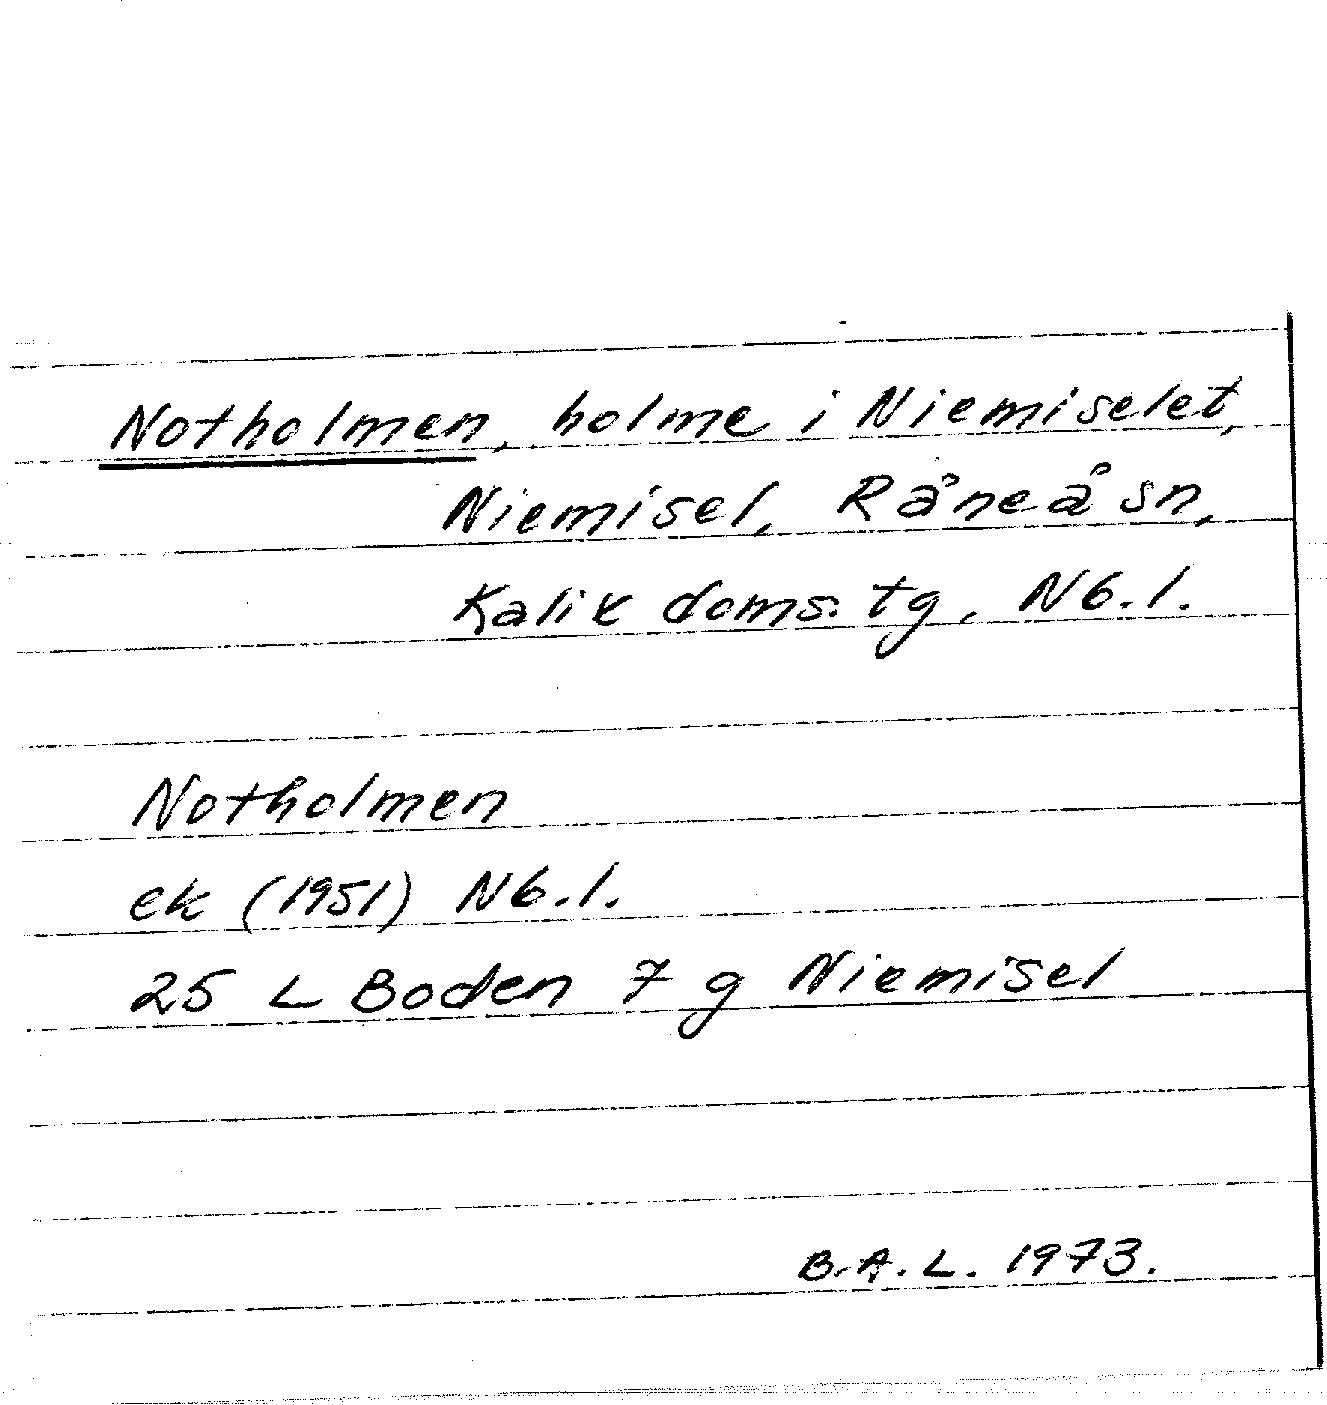 Notholmen, holme i Niemiselet,
Niemisel, Råneå sn,
Kalix doms. tg, Nb. l.
Notholmen
ek (1951) Nb. l.
25 L Boden 7 g Niemisel
B.A.L. 1973.